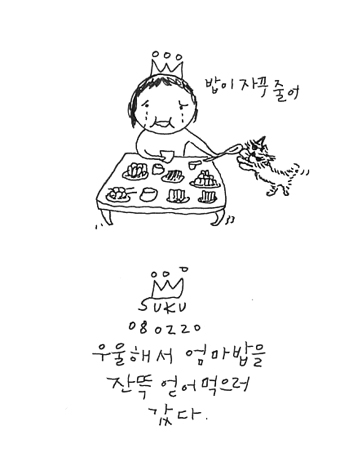 밥이 자꾸 줄어
SUKU
080220
우울해서 엄마밥을
잔뜩 얻어먹으러
갔다.